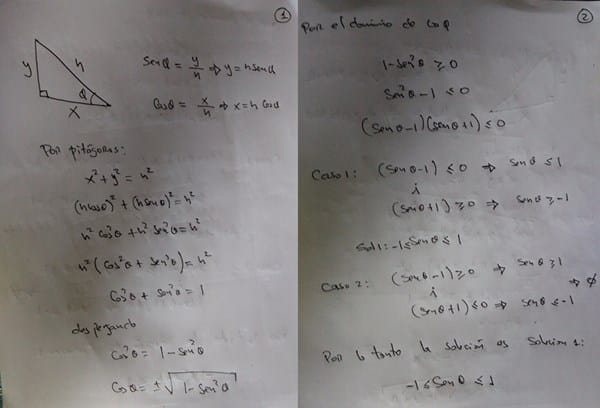 1
y
h
x
θ
Senθ = y/h ⇒ y = h senθ
Cosθ = x/h ⇒ x = h Cosθ
Por pitágoras:
x² + y² = h²
(h cosθ)² + (h senθ)² = h²
h² Cos²θ + h² Sen²θ = h²
h² (Cos²θ + Sen²θ) = h²
Cos²θ + sen²θ = 1
despejando
Cos²θ = 1 - Sen²θ
Cosθ = ±√(1 - Sen²θ)
2
Por el dominio de
1 - Sen²θ ≥ 0
Sen²θ - 1 ≤ 0
(Senθ - 1)(Senθ + 1) ≤ 0
Caso 1: (Senθ - 1) ≤ 0 ⇒ Senθ ≤ 1
i
(Senθ + 1) ≥ 0 ⇒ Senθ ≥ -1
Sol 1: -1 ≤ Senθ ≤ 1
Caso 2: (Senθ - 1) ≥ 0 ⇒ Senθ ≥ 1
i ⇒ ∅
(Senθ + 1) ≤ 0 ⇒ Senθ ≤ -1
Por lo tanto la solución es Solución 1:
-1 ≤ Senθ ≤ 1